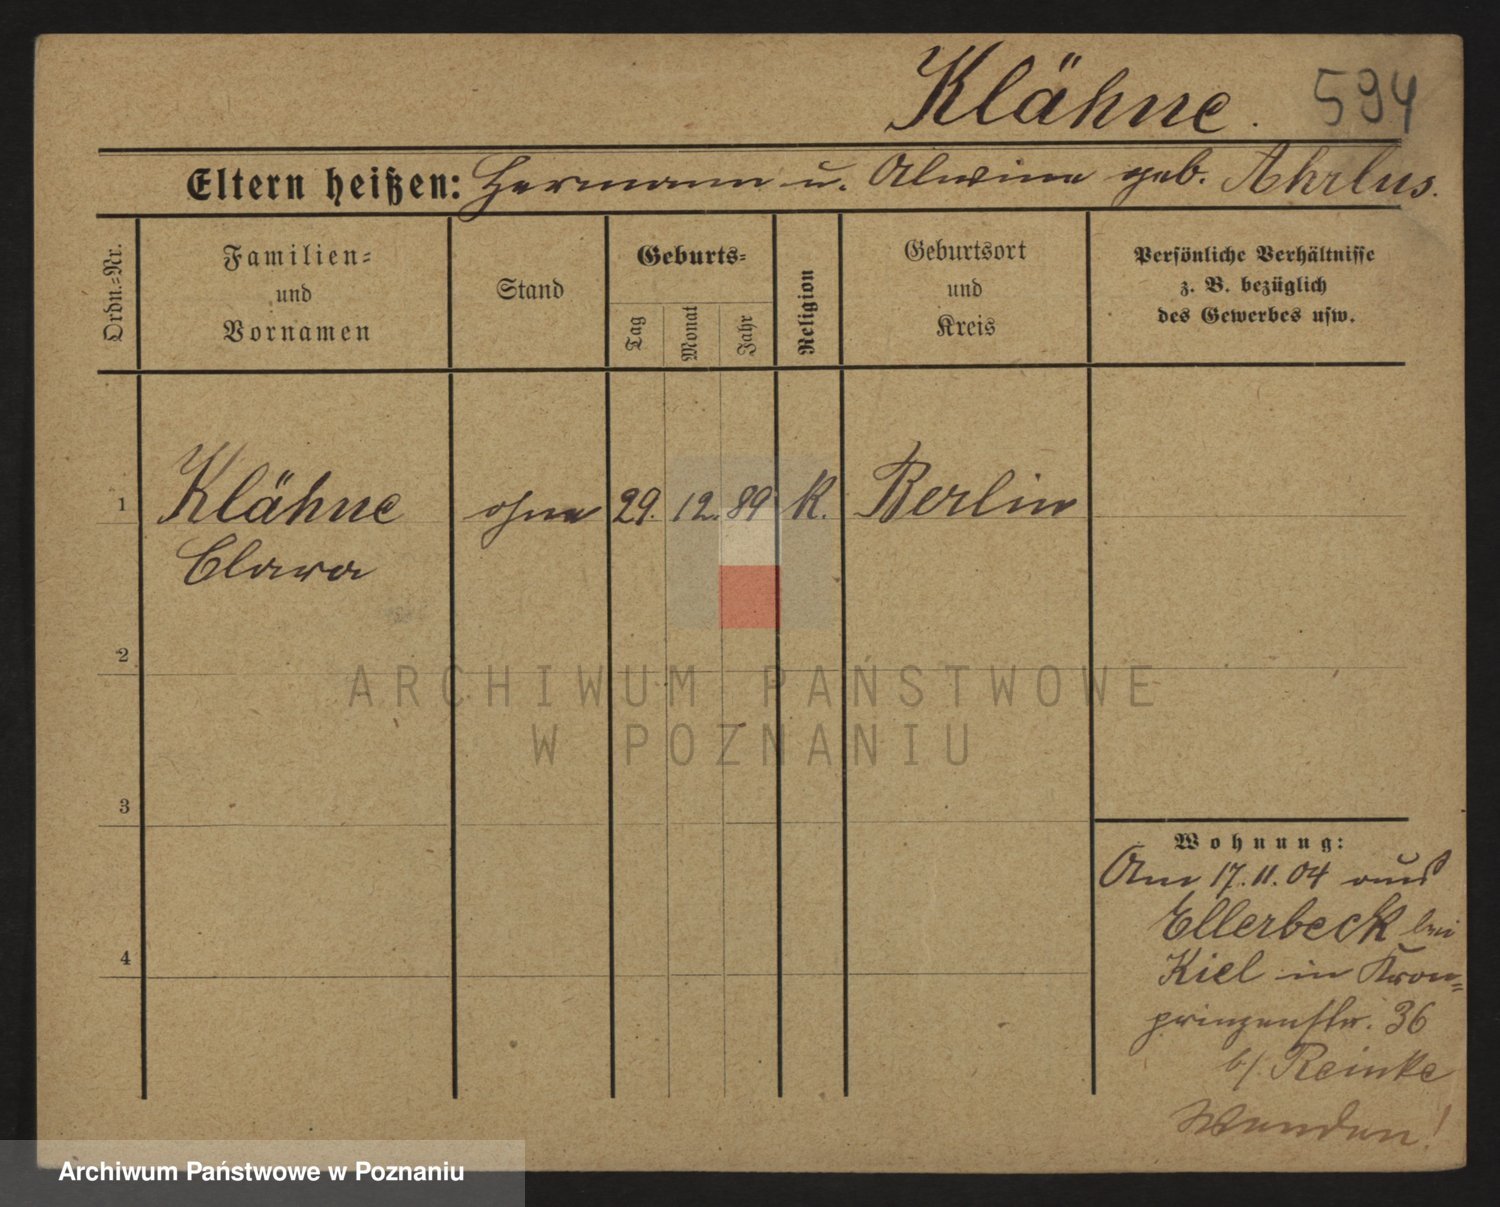 Klähne. 594
Eltern heißen: Hermann u. Alwine geb. Ahrlus.
Ordn.=Nr.
Familien=
und
Vornamen
Stand
Geburts=
Tag
Monat
Jahr
Religion
Geburtsort
und
Kreis
Persönliche Verhältnisse
z. B. bezüglich
des Gewerbes usw.
1 Klähne ohne 29. 12. 89 K. Berlin
Clara
2
3
4
Wohnung:
Am 17.11.04 aus
Ellerbeck bei
Kiel in Kron=
prinzenstr. 36
b/ Reinke
Wenden!
ARCHIWUM PAŃSTWOWE
W POZNANIU
Archiwum Państwowe w Poznaniu